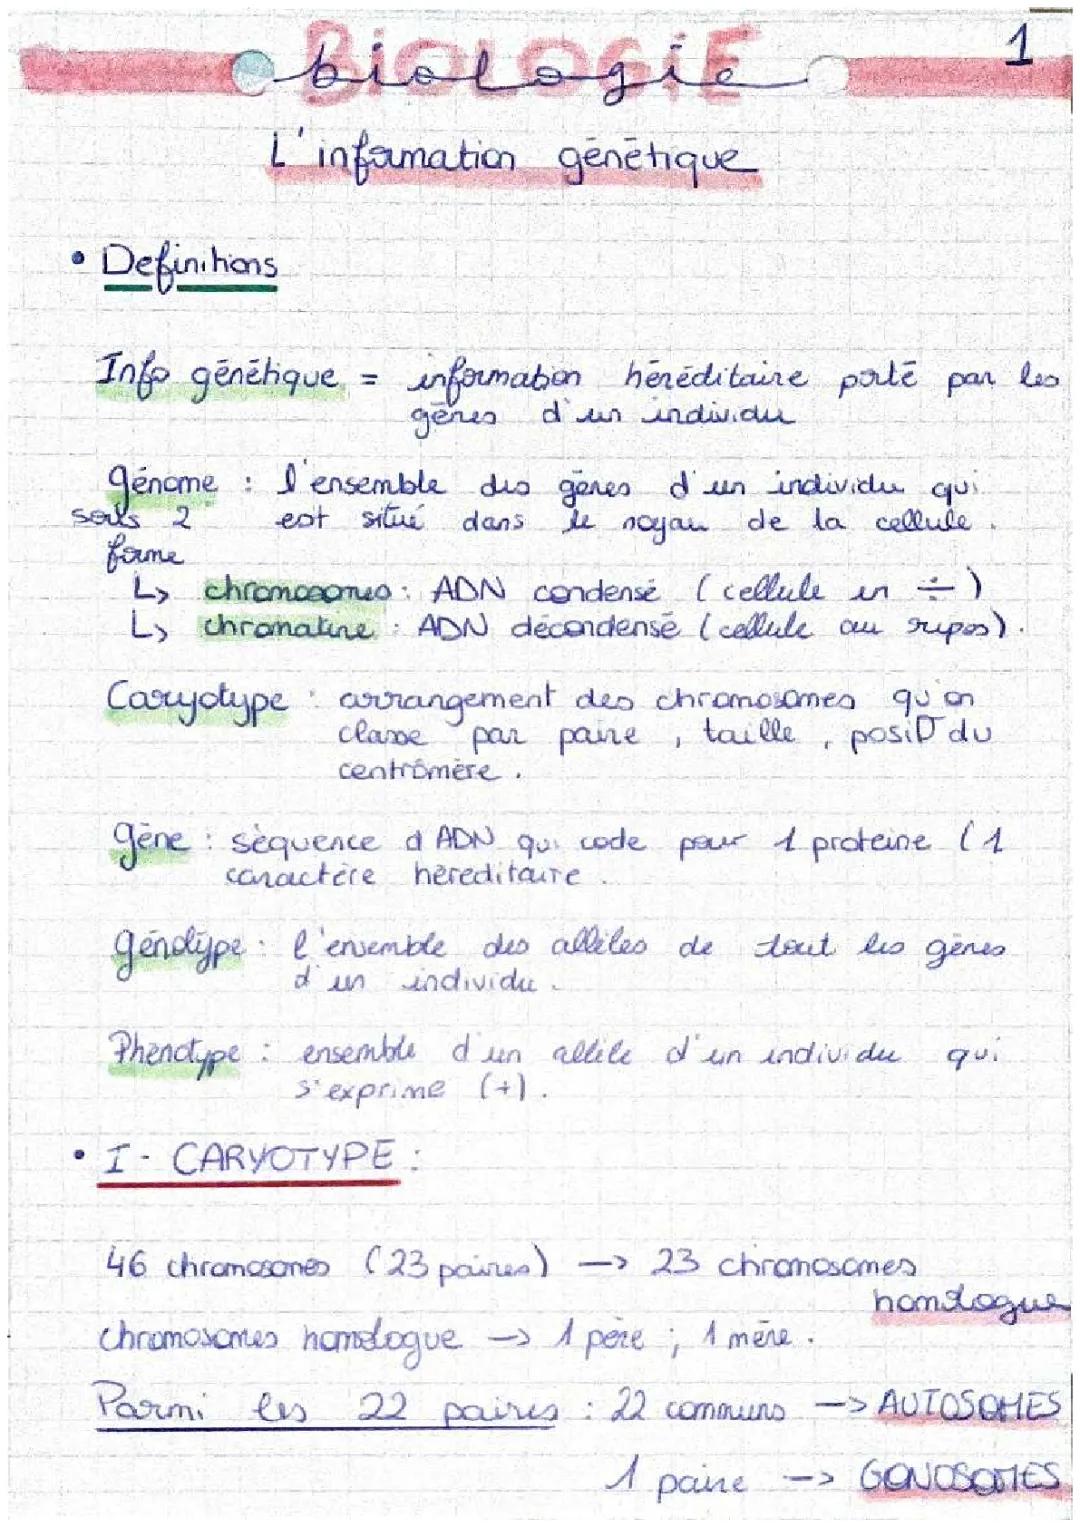 1
BIOLOGIE
biologie
L'information génétique
• Definitions
Info génétique = information héréditaire porté par les
gènes d'un individu
Génome : l'ensemble des gènes d'un individu qui
sous 2 est situé dans le noyau de la cellule.
forme
↳ chromosomes : ADN condensé (cellule en ÷)
↳ chromatine : ADN décondensé (cellule au repos).
Caryotype : arrangement des chromosomes qu'on
classe par paire, taille, posit° du
centromère.
Gène : séquence d'ADN qui code pour 1 proteine (1
caractère héréditaire.
Génotype : l'ensemble des allèles de tout les gènes
d'un individu.
Phénotype : ensemble d'un allèle d'un individu qui
s'exprime (+).
• I - CARYOTYPE :
46 chromosomes (23 paires) → 23 chromosomes
homologue
chromosomes homologue → 1 père ; 1 mère.
Parmi les 22 paires : 22 communs → AUTOSOMES
1 paire → GONOSOMES